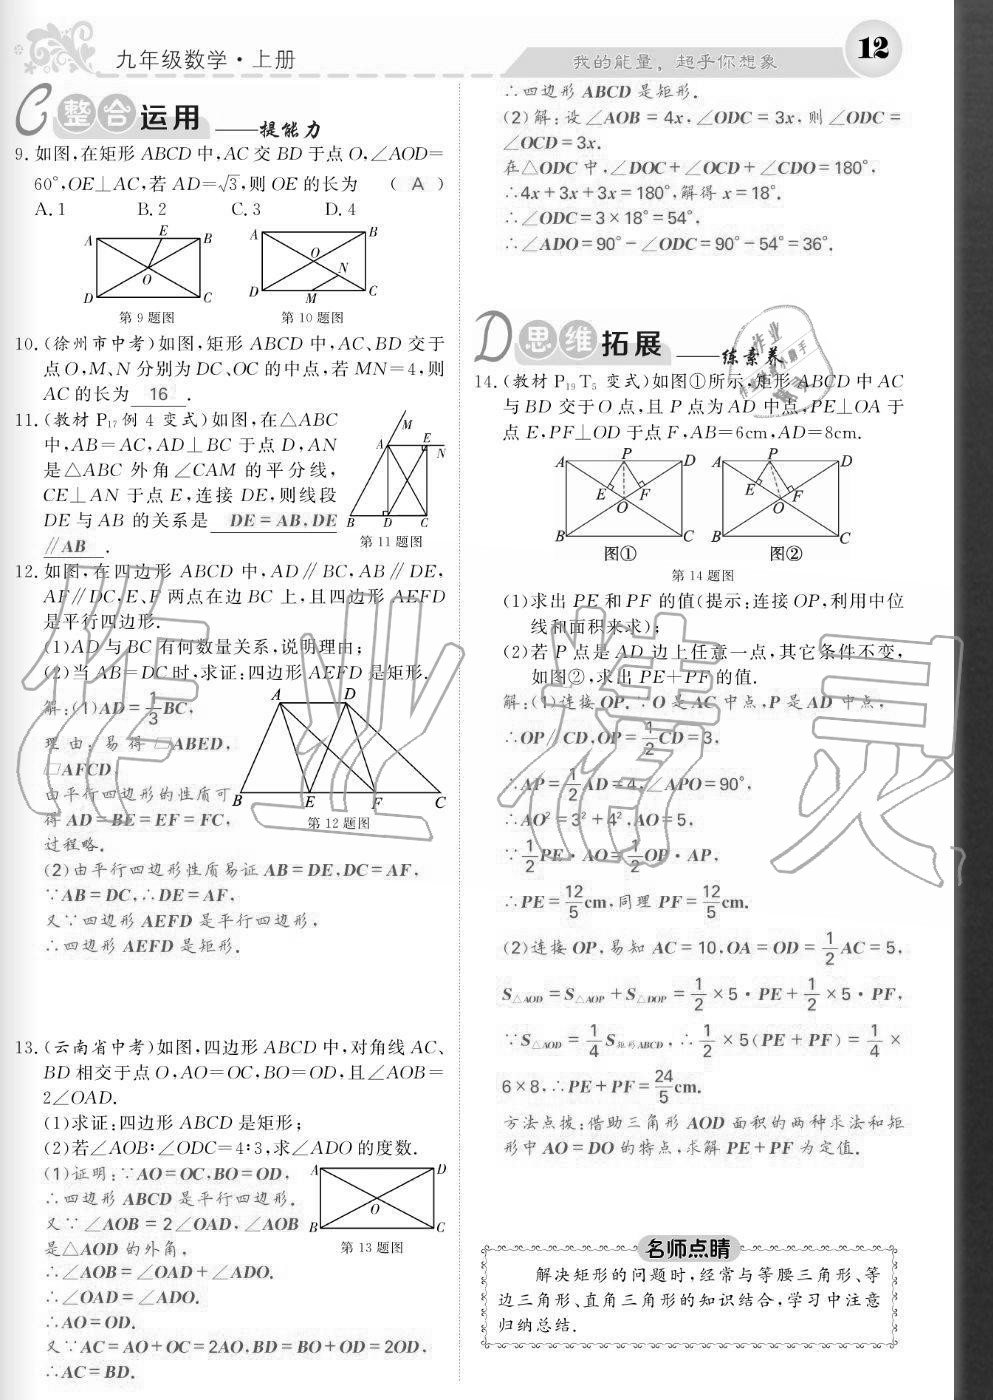 九年级数学·上册
我的能量，超乎你想象
12
C 整合运用 ——提能力
9. 如图,在矩形 ABCD 中,AC 交 BD 于点 O,∠AOD=
60°,OE⊥AC,若 AD=√3,则 OE 的长为 ( A )
A. 1 B. 2 C. 3 D. 4
A E B O D C
A B O N D M C
第 9 题图 第 10 题图
10. (徐州市中考)如图,矩形 ABCD 中,AC、BD 交于
点 O,M、N 分别为 DC、OC 的中点,若 MN=4,则
AC 的长为 16 .
11. (教材 P₁₇ 例 4 变式)如图,在△ABC
中,AB=AC,AD⊥BC 于点 D,AN
是△ABC 外角∠CAM 的平分线,
CE⊥AN 于点 E,连接 DE,则线段
DE 与 AB 的关系是 DE=AB,DE
∥AB .
M A E N B D C
第 11 题图
12. 如图,在四边形 ABCD 中,AD∥BC,AB∥DE,
AF∥DC,E、F 两点在边 BC 上,且四边形 AEFD
是平行四边形.
(1)AD 与 BC 有何数量关系,说明理由;
(2)当 AB=DC 时,求证:四边形 AEFD 是矩形.
解:(1)AD=1/3 BC,
理由:易得□ABED,
□AFCD,
由平行四边形的性质可
得 AD=BE=EF=FC,
过程略.
A D B E F C
第 12 题图
(2)由平行四边形性质易证 AB=DE,DC=AF,
∵AB=DC,∴DE=AF,
又∵四边形 AEFD 是平行四边形,
∴四边形 AEFD 是矩形.
13. (云南省中考)如图,四边形 ABCD 中,对角线 AC、
BD 相交于点 O,AO=OC,BO=OD,且∠AOB=
2∠OAD.
(1)求证:四边形 ABCD 是矩形;
(2)若∠AOB∶∠ODC=4∶3,求∠ADO 的度数.
(1)证明:∵AO=OC,BO=OD,
∴四边形 ABCD 是平行四边形.
又∵∠AOB=2∠OAD,∠AOB
是△AOD 的外角,
∴∠AOB=∠OAD+∠ADO.
∴∠OAD=∠ADO.
∴AO=OD.
又∵AC=AO+OC=2AO,BD=BO+OD=2OD,
∴AC=BD.
A D O B C
第 13 题图
∴四边形 ABCD 是矩形.
(2)解:设∠AOB=4x,∠ODC=3x,则∠ODC=
∠OCD=3x.
在△ODC 中,∠DOC+∠OCD+∠CDO=180°,
∴4x+3x+3x=180°,解得 x=18°.
∴∠ODC=3×18°=54°,
∴∠ADO=90°-∠ODC=90°-54°=36°.
D 思维拓展 ——练素养
14. (教材 P₁₉ T₅ 变式)如图①所示,矩形 ABCD 中 AC
与 BD 交于 O 点,且 P 点为 AD 中点,PE⊥OA 于
点 E,PF⊥OD 于点 F,AB=6cm,AD=8cm.
A P D E F O B C
A P D E F O B C
图① 图②
第 14 题图
(1)求出 PE 和 PF 的值(提示:连接 OP,利用中位
线和面积来求);
(2)若 P 点是 AD 边上任意一点,其它条件不变,
如图②,求出 PE+PF 的值.
解:(1)连接 OP.∵O 是 AC 中点,P 是 AD 中点,
∴OP∥CD,OP=1/2 CD=3,
∴AP=1/2 AD=4,∠APO=90°,
∴AO²=3²+4²,AO=5,
∵1/2 PE·AO=1/2 OP·AP,
∴PE=12/5 cm,同理 PF=12/5 cm.
(2)连接 OP,易知 AC=10,OA=OD=1/2 AC=5,
S△AOD=S△AOP+S△DOP=1/2×5·PE+1/2×5·PF,
∵S△AOD=1/4 S矩形ABCD,∴1/2×5(PE+PF)=1/4×
6×8,∴PE+PF=24/5 cm.
方法点拨:借助三角形 AOD 面积的两种求法和矩
形中 AO=DO 的特点,求解 PE+PF 为定值.
名师点睛
解决矩形的问题时,经常与等腰三角形、等
边三角形、直角三角形的知识结合,学习中注意
归纳总结.
作业精灵